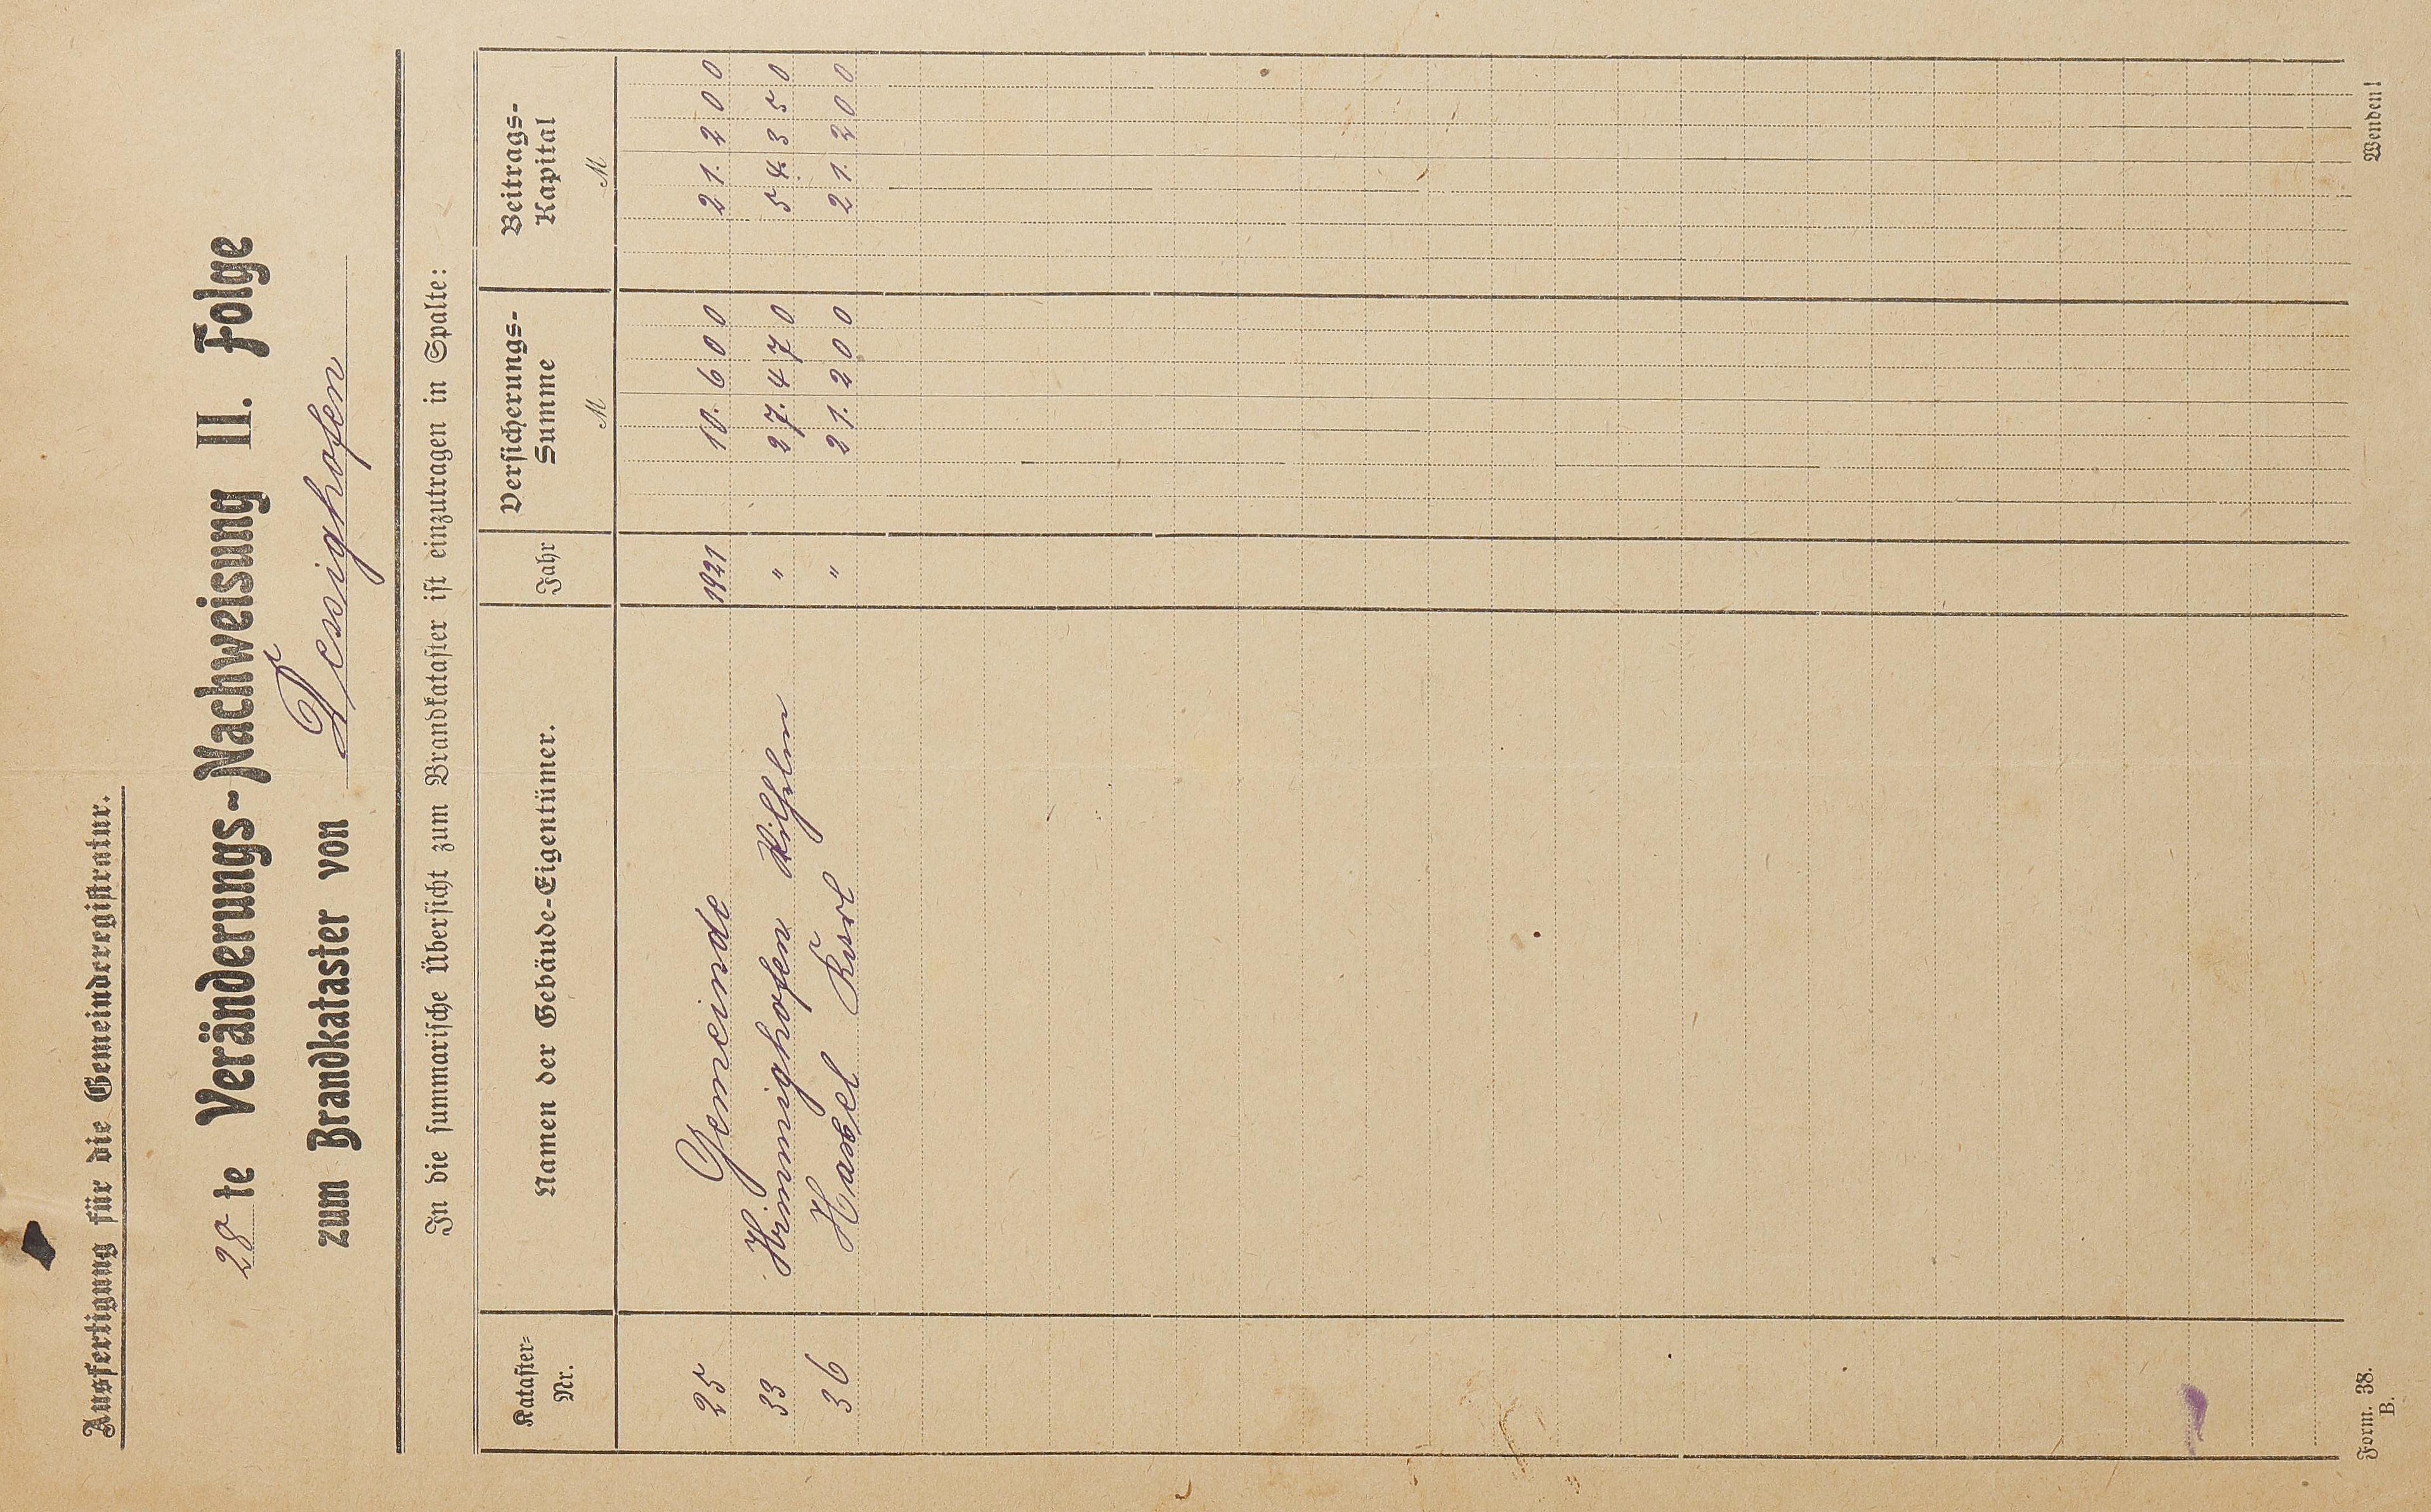 Ausfertigung für die Gemeinderegistratur.
28 te Veränderungs-Nachweisung II. Folge
zum Brandkataster von Dessighofen
In die summarische Übersicht zum Brandkataster ist einzutragen in Spalte:
Kataster-Nr. Namen der Gebäude-Eigentümer. Jahr Versicherungs-Summe M Beitrags-Kapital M
25 Gemeinde 1921 10.600 21.200
33 Himmighofen Wilhelm " 27.470 54.350
36 Haxel Karl " 21.200 21.200
Form. 38. B.
Wenden!